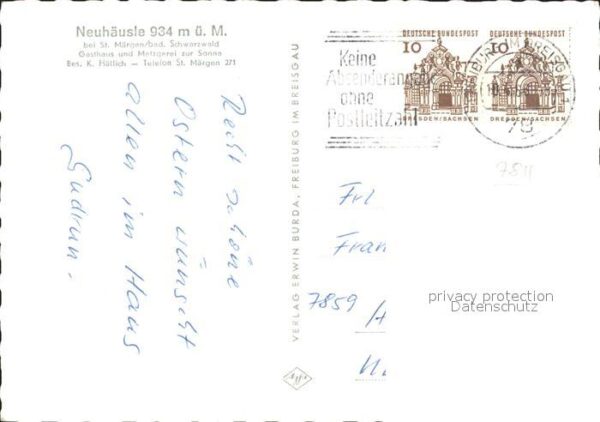 Neuhäusle 934 m ü. M.
bei St. Märgen/bad. Schwarzwald
Gasthaus und Metzgerei zur Sonne
Bes. K. Hättich — Telefon St. Märgen 271
Recht schöne
Ostern wünscht
allen im Haus
Gudrun.
VERLAG ERWIN BURDA, FREIBURG IM BREISGAU
Agfa
Keine
Absenderangabe
ohne
Postleitzahl
DEUTSCHE BUNDESPOST
10
DRESDEN/SACHSEN
DEUTSCHE BUNDESPOST
10
DRESDEN/SACHSEN
78
7811
Frl
Fran
7859
privacy protection
Datenschutz